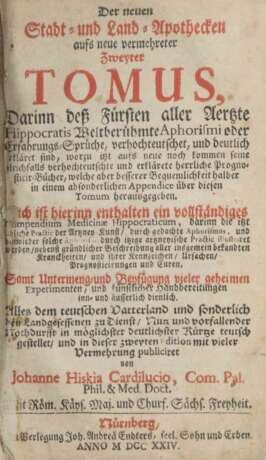 Der neuen
Stadt- und Land-Apothecken
aufs neue vermehreter
Zweyter
TOMUS,
Darinn deß Fürsten aller Aertzte
Hippocratis Weltberühmte Aphorismi oder
Erfahrungs-Sprüche, verhochteutschet, und deutlich
erkläret sind, worzu itzt aufs neue noch kommen seine
gleichfalls verhochteutschte und erklärete herrliche Progno-
stic-Bücher, welche aber besserer Bequemlichkeit halber
in einem absonderlichen Appendice über diesen
Tomum herausgegeben.
Auch ist hierinn enthalten ein vollständiges
Compendium Medicinæ Hippocraticum, darinn die itzt
Practic der Artzney Kunst / durch gedachte Aphorismos, und
solche durch itzige artzneyische Practic illustriret
werden / nebenst gründlicher Beschreibung aller insgemein bekandten
Kranckheiten / und ihrer Kennzeichen / Ursachen /
Prognosticirungen und Curen.
Samt Untermeng- und Beyfügung vieler geheimen
Experimenten / und künstlicher Handbereitungen
inn- und äusserlich dienlich.
Alles dem teutschen Vatterland und sonderlich
den Landgesessenen zu Dienst / Nutz und vorfallender
Nothdurfft in möglichster deutlichster Kürtze teutsch
gestellet / und in dieser zweyten Edition mit vieler
Vermehrung publiciret
von
Johanne Hiskia Cardilucio, Com. Pal.
Phil. & Med. Doct.
Mit Röm. Käys. Maj. und Churf. Sächs. Freyheit.
Nürnberg /
in Verlegung Joh. Andreä Endters / seel. Sohn und Erben.
ANNO M DCC XXIV.